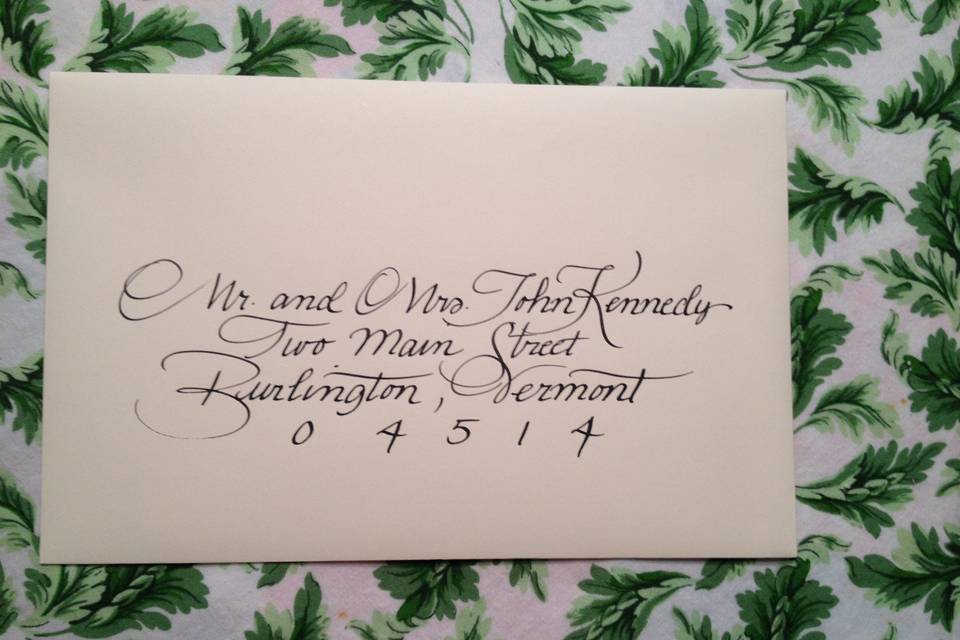 Mr. and Mrs. John Kennedy
Two Main Street
Burlington, Vermont
0 4 5 1 4